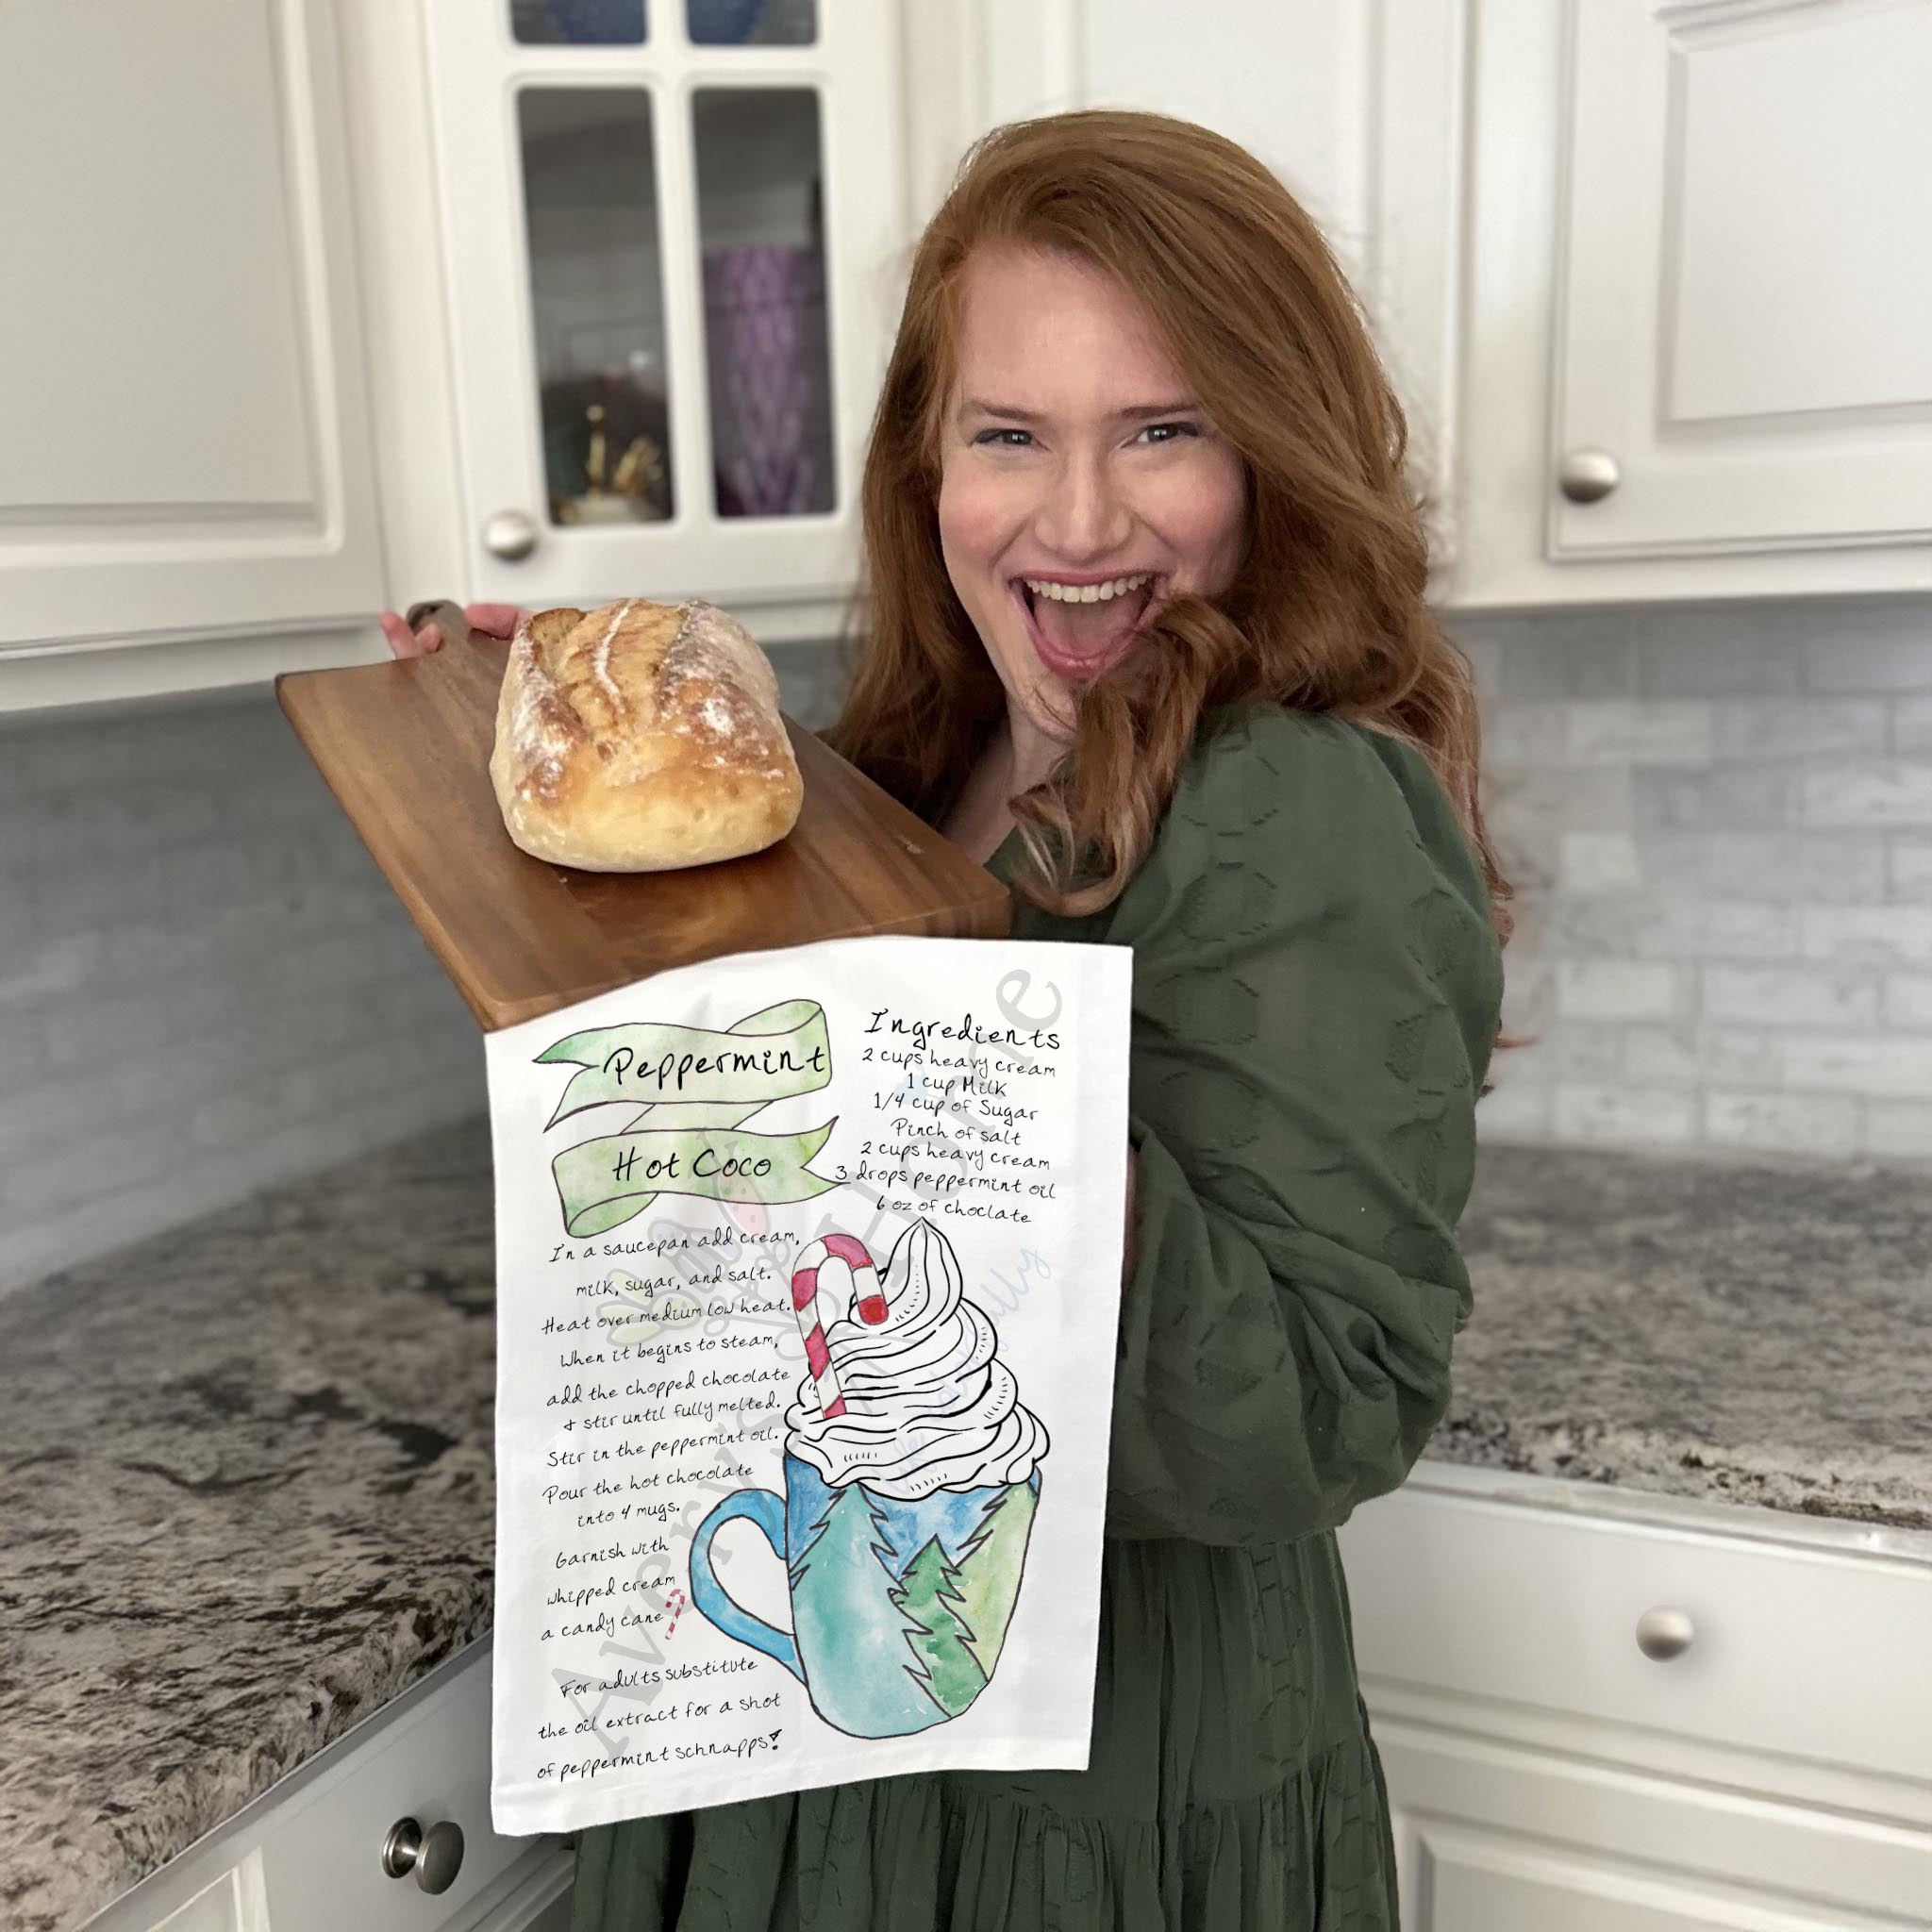 Peppermint
Hot Coco
Ingredients
2 cups heavy cream
1 cup Milk
1/4 cup of Sugar
Pinch of salt
2 cups heavy cream
3 drops peppermint oil
6 oz of choclate
In a saucepan add cream,
milk, sugar, and salt.
Heat over medium low heat.
When it begins to steam,
add the chopped chocolate
& stir until fully melted.
Stir in the peppermint oil.
Pour the hot chocolate
into 4 mugs.
Garnish with
whipped cream
a candy cane
For adults substitute
the oil extract for a shot
of peppermint schnapps!
Home